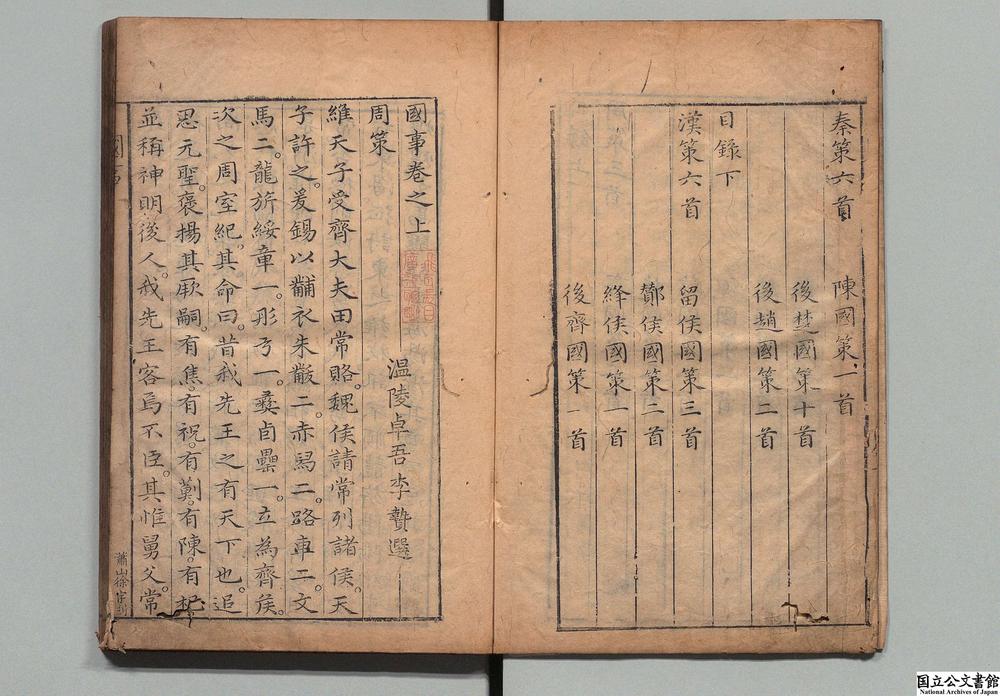 秦策六首　陳國策一首
後楚國策十首
後趙國策二首
目錄下
漢策六首　留侯國策三首
酇侯國策二首
絳侯國策一首
後齊國策一首
國事卷之上
周策　溫陵卓吾李贄選
維天子受齊大夫田常賂。魏侯請常列諸侯。天
子許之。爰錫以黼衣朱黻二。赤舄二。路車二。文
馬二。龍旂綏章一。彤弓一。彝卣罍一。立為齊侯。
次之周室紀。其命曰。昔我先王之有天下也。追
思元聖。褒揚其厥嗣。有焦。有祝。有薊。有陳。有杞。
並稱神明後人。我先王客焉不臣。其惟舅父。常
蕭山徐
国立公文書館
National Archives of Japan